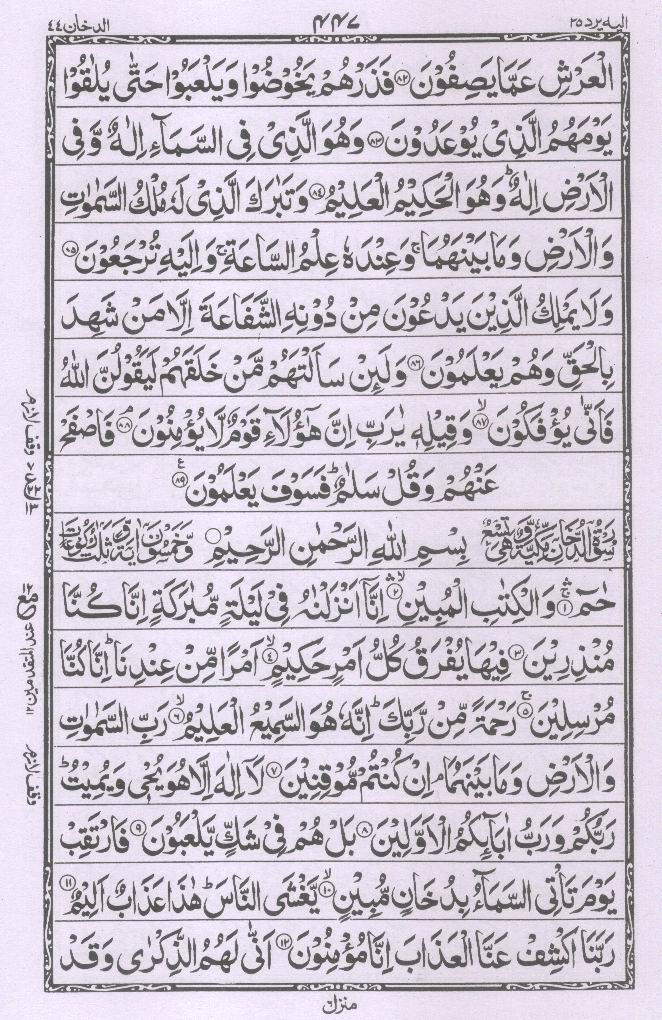 اليه يرد ٢٥ ٤٤٧ الدخان ٤٤
الْعَرْشِ عَمَّا يَصِفُوْنَ ﴿٨٢﴾ فَذَرْهُمْ يَخُوْضُوْا وَيَلْعَبُوْا حَتّٰى يُلٰقُوْا
يَوْمَهُمُ الَّذِيْ يُوْعَدُوْنَ ﴿٨٣﴾ وَهُوَ الَّذِيْ فِى السَّمَآءِ اِلٰهٌ وَّفِى
الْاَرْضِ اِلٰهٌ ؕ وَهُوَ الْحَكِيْمُ الْعَلِيْمُ ﴿٨٤﴾ وَتَبٰرَكَ الَّذِيْ لَهٗ مُلْكُ السَّمٰوٰتِ
وَالْاَرْضِ وَمَا بَيْنَهُمَا ۚ وَعِنْدَهٗ عِلْمُ السَّاعَةِ ۚ وَاِلَيْهِ تُرْجَعُوْنَ ﴿٨٥﴾
وَلَا يَمْلِكُ الَّذِيْنَ يَدْعُوْنَ مِنْ دُوْنِهِ الشَّفَاعَةَ اِلَّا مَنْ شَهِدَ
بِالْحَقِّ وَهُمْ يَعْلَمُوْنَ ﴿٨٦﴾ وَلَئِنْ سَاَلْتَهُمْ مَّنْ خَلَقَهُمْ لَيَقُوْلُنَّ اللّٰهُ
فَاَنّٰى يُؤْفَكُوْنَ ۙ﴿٨٧﴾ وَقِيْلِهٖ يٰرَبِّ اِنَّ هٰٓؤُلَآءِ قَوْمٌ لَّا يُؤْمِنُوْنَ ۘ﴿٨٨﴾ فَاصْفَحْ
عَنْهُمْ وَقُلْ سَلٰمٌ ؕ فَسَوْفَ يَعْلَمُوْنَ ﴿٨٩﴾ ع
سُوْرَةُ الدُّخَانِ مَكِّيَّةٌ وَّهِىَ تِسْعٌ بِسْمِ اللّٰهِ الرَّحْمٰنِ الرَّحِيْمِ وَّخَمْسُوْنَ اٰيَةً وَّثَلٰثُ رُكُوْعَاتٍ
حٰمٓ ۚۛ﴿١﴾ وَالْكِتٰبِ الْمُبِيْنِ ۙۛ﴿٢﴾ اِنَّآ اَنْزَلْنٰهُ فِيْ لَيْلَةٍ مُّبٰرَكَةٍ اِنَّا كُنَّا
مُنْذِرِيْنَ ﴿٣﴾ فِيْهَا يُفْرَقُ كُلُّ اَمْرٍ حَكِيْمٍ ۙ﴿٤﴾ اَمْرًا مِّنْ عِنْدِنَا ؕ اِنَّا كُنَّا
مُرْسِلِيْنَ ۚ﴿٥﴾ رَحْمَةً مِّنْ رَّبِّكَ ؕ اِنَّهٗ هُوَ السَّمِيْعُ الْعَلِيْمُ ۙ﴿٦﴾ رَبِّ السَّمٰوٰتِ
وَالْاَرْضِ وَمَا بَيْنَهُمَا ۘ اِنْ كُنْتُمْ مُّوْقِنِيْنَ ﴿٧﴾ لَآ اِلٰهَ اِلَّا هُوَ يُحْيٖ وَيُمِيْتُ ؕ
رَبُّكُمْ وَرَبُّ اٰبَآئِكُمُ الْاَوَّلِيْنَ ﴿٨﴾ بَلْ هُمْ فِيْ شَكٍّ يَّلْعَبُوْنَ ﴿٩﴾ فَارْتَقِبْ
يَوْمَ تَاْتِى السَّمَآءُ بِدُخَانٍ مُّبِيْنٍ ۙ﴿١٠﴾ يَّغْشَى النَّاسَ ؕ هٰذَا عَذَابٌ اَلِيْمٌ ﴿١١﴾
رَبَّنَا اكْشِفْ عَنَّا الْعَذَابَ اِنَّا مُؤْمِنُوْنَ ﴿١٢﴾ اَنّٰى لَهُمُ الذِّكْرٰى وَقَدْ
منزل ٦
وقف لازم
عند المتقدمين ١٢
وقف لازم